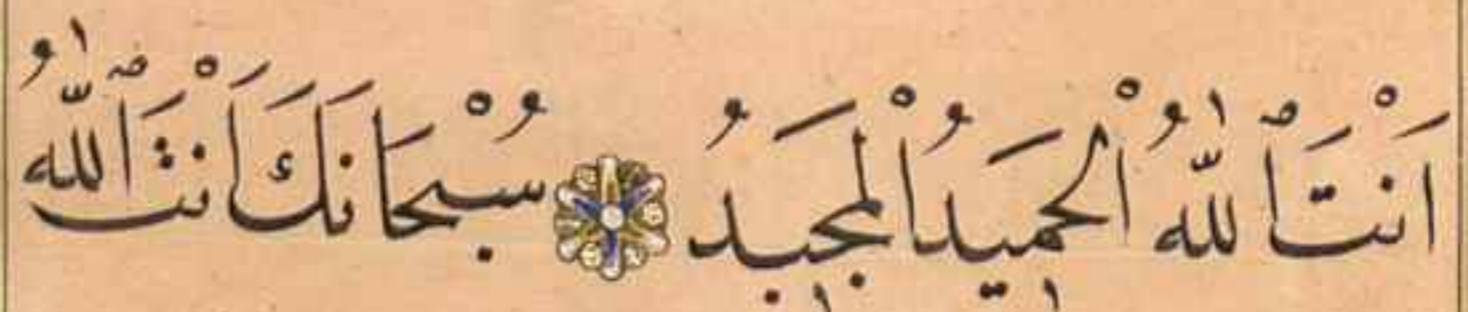 اَنْتَ ٱللّٰهُ الْحَمِيدُ الْمَجِيدُ سُبْحَانَكَ اَنْتَ ٱللّٰهُ